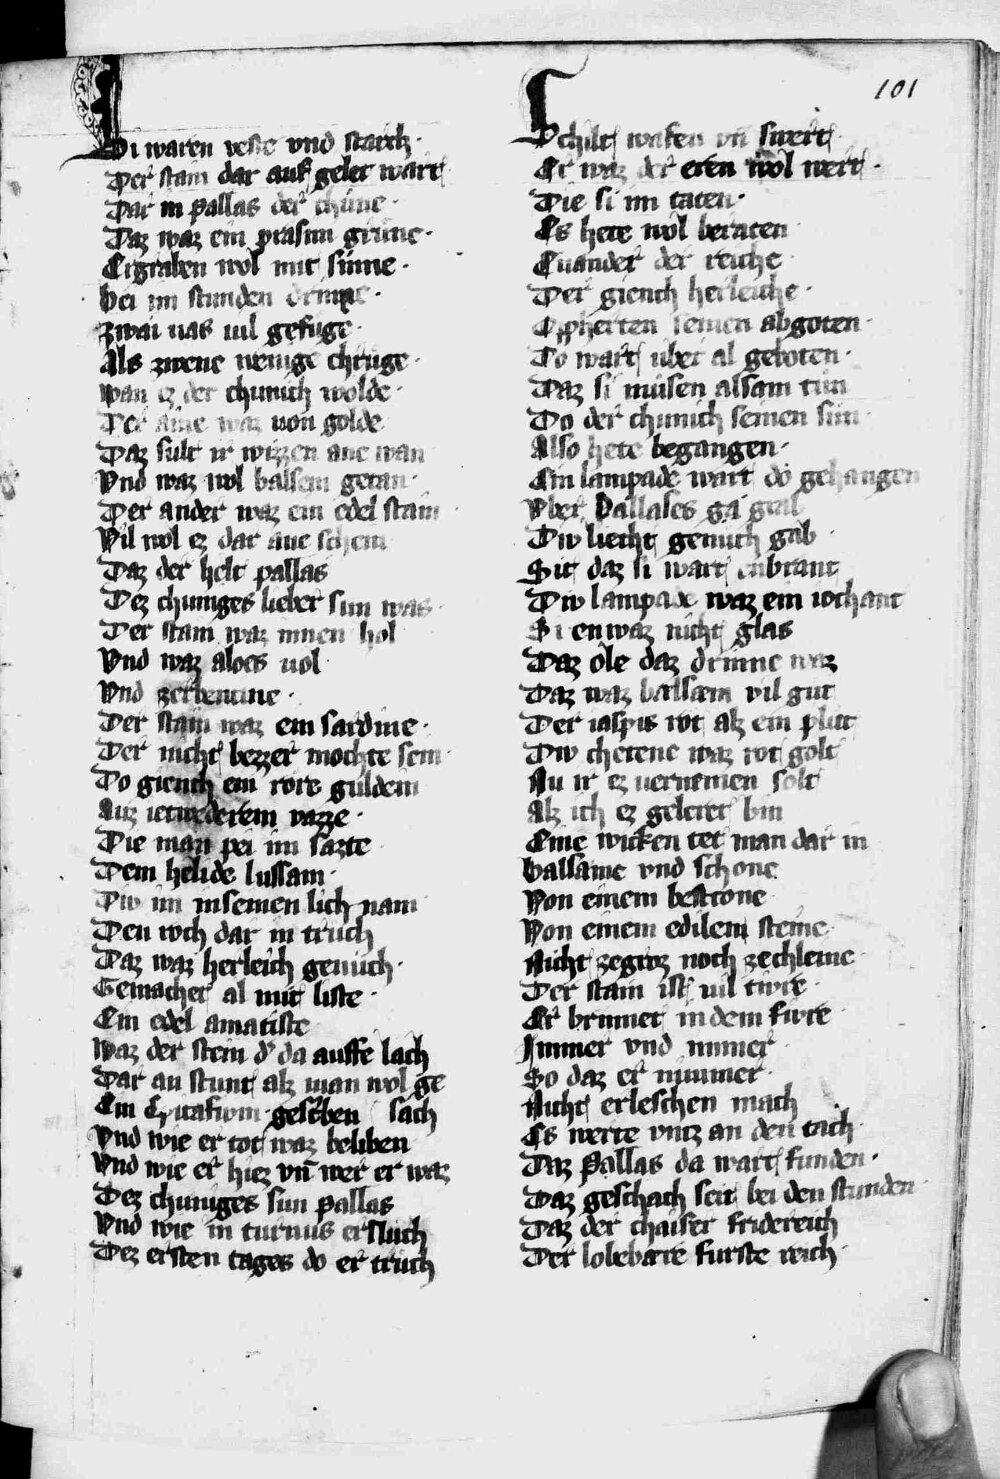 101
Di waren veste vnd starch
Der stain dar auf gelet wart
Dar in pallas der chune
Daz waz ein prasim grune
Ergraben wol mit sinne
Bei im stunden drinne
Zwai uas uil gefuge
Als zwene wenige chruge
wan ez der chunich wolde
Der aine waz von golde
Daz sult ir wizzen ane wan
Vnd waz wol balsem getan
Der ander waz ein edel stain
Vil wol ez dar ane schein
Daz der helt pallas
Dez chuniges lieber sun was
Der stain waz innen hol
Vnd waz aloes uol
Vnd zerbentine
Der stain waz ein sardine
Der nicht bezzer mochte sein
Do giench ein rore guldein
Auz ietwederem vazze
Die man pei im sazte
Dem helide lussam
Div im in seinen lich nam
Den roch dar in truch
Daz waz herleich genuch
Gemachet al mit liste
Ein edel amatiste
Waz der stein d' da auffe lach
Dar an stunt alz man wol ge
Ein Epitafium geschriben sach
Vnd wie er tot waz beliben
Vnd wie er hiez vn̄ wer er waz
Dez chuniges sun pallas
Vnd wie in turnus ersluch
Dez ersten tages do er truch
Schilt wafen vn̄ swert
Er waz der eren wol wert
Die si im taten
Es hete wol beraten
Euander der reiche
Der giench herleiche
Opherten seinen abgoten
Do wart uber al geboten
Daz si musen alsam tun
Do der chunich seinen sun
Also hete begangen
Ein lampade wart do gehangen
Vber Pallases grab
Div liecht genuch gab
Sit daz si wart enbrant
Div lampade waz ein iochant
Si en waz nicht glas
Daz ole daz drinne waz
Daz waz balsam vil gut
Der iaspis rot alz ein plut
Div chetene waz rot golt
Nu ir ez uernemen solt
Alz ich ez geleret bin
Eine wicken tet man dar in
Balsame vnd schone
Von einem bestrone
Von einem edilem steine
Nicht ze groz noch ze chleine
Der stain ist uil tivre
Er brinnet in dem fivre
Immer vnd immer
So daz er nimmer
Nicht erleschen mach
Es werte vntz an den tach
Daz Pallas da wart funden
Daz geschach seit bei den stunden
Daz der chaiser fridereich
Der lolebare furste reich